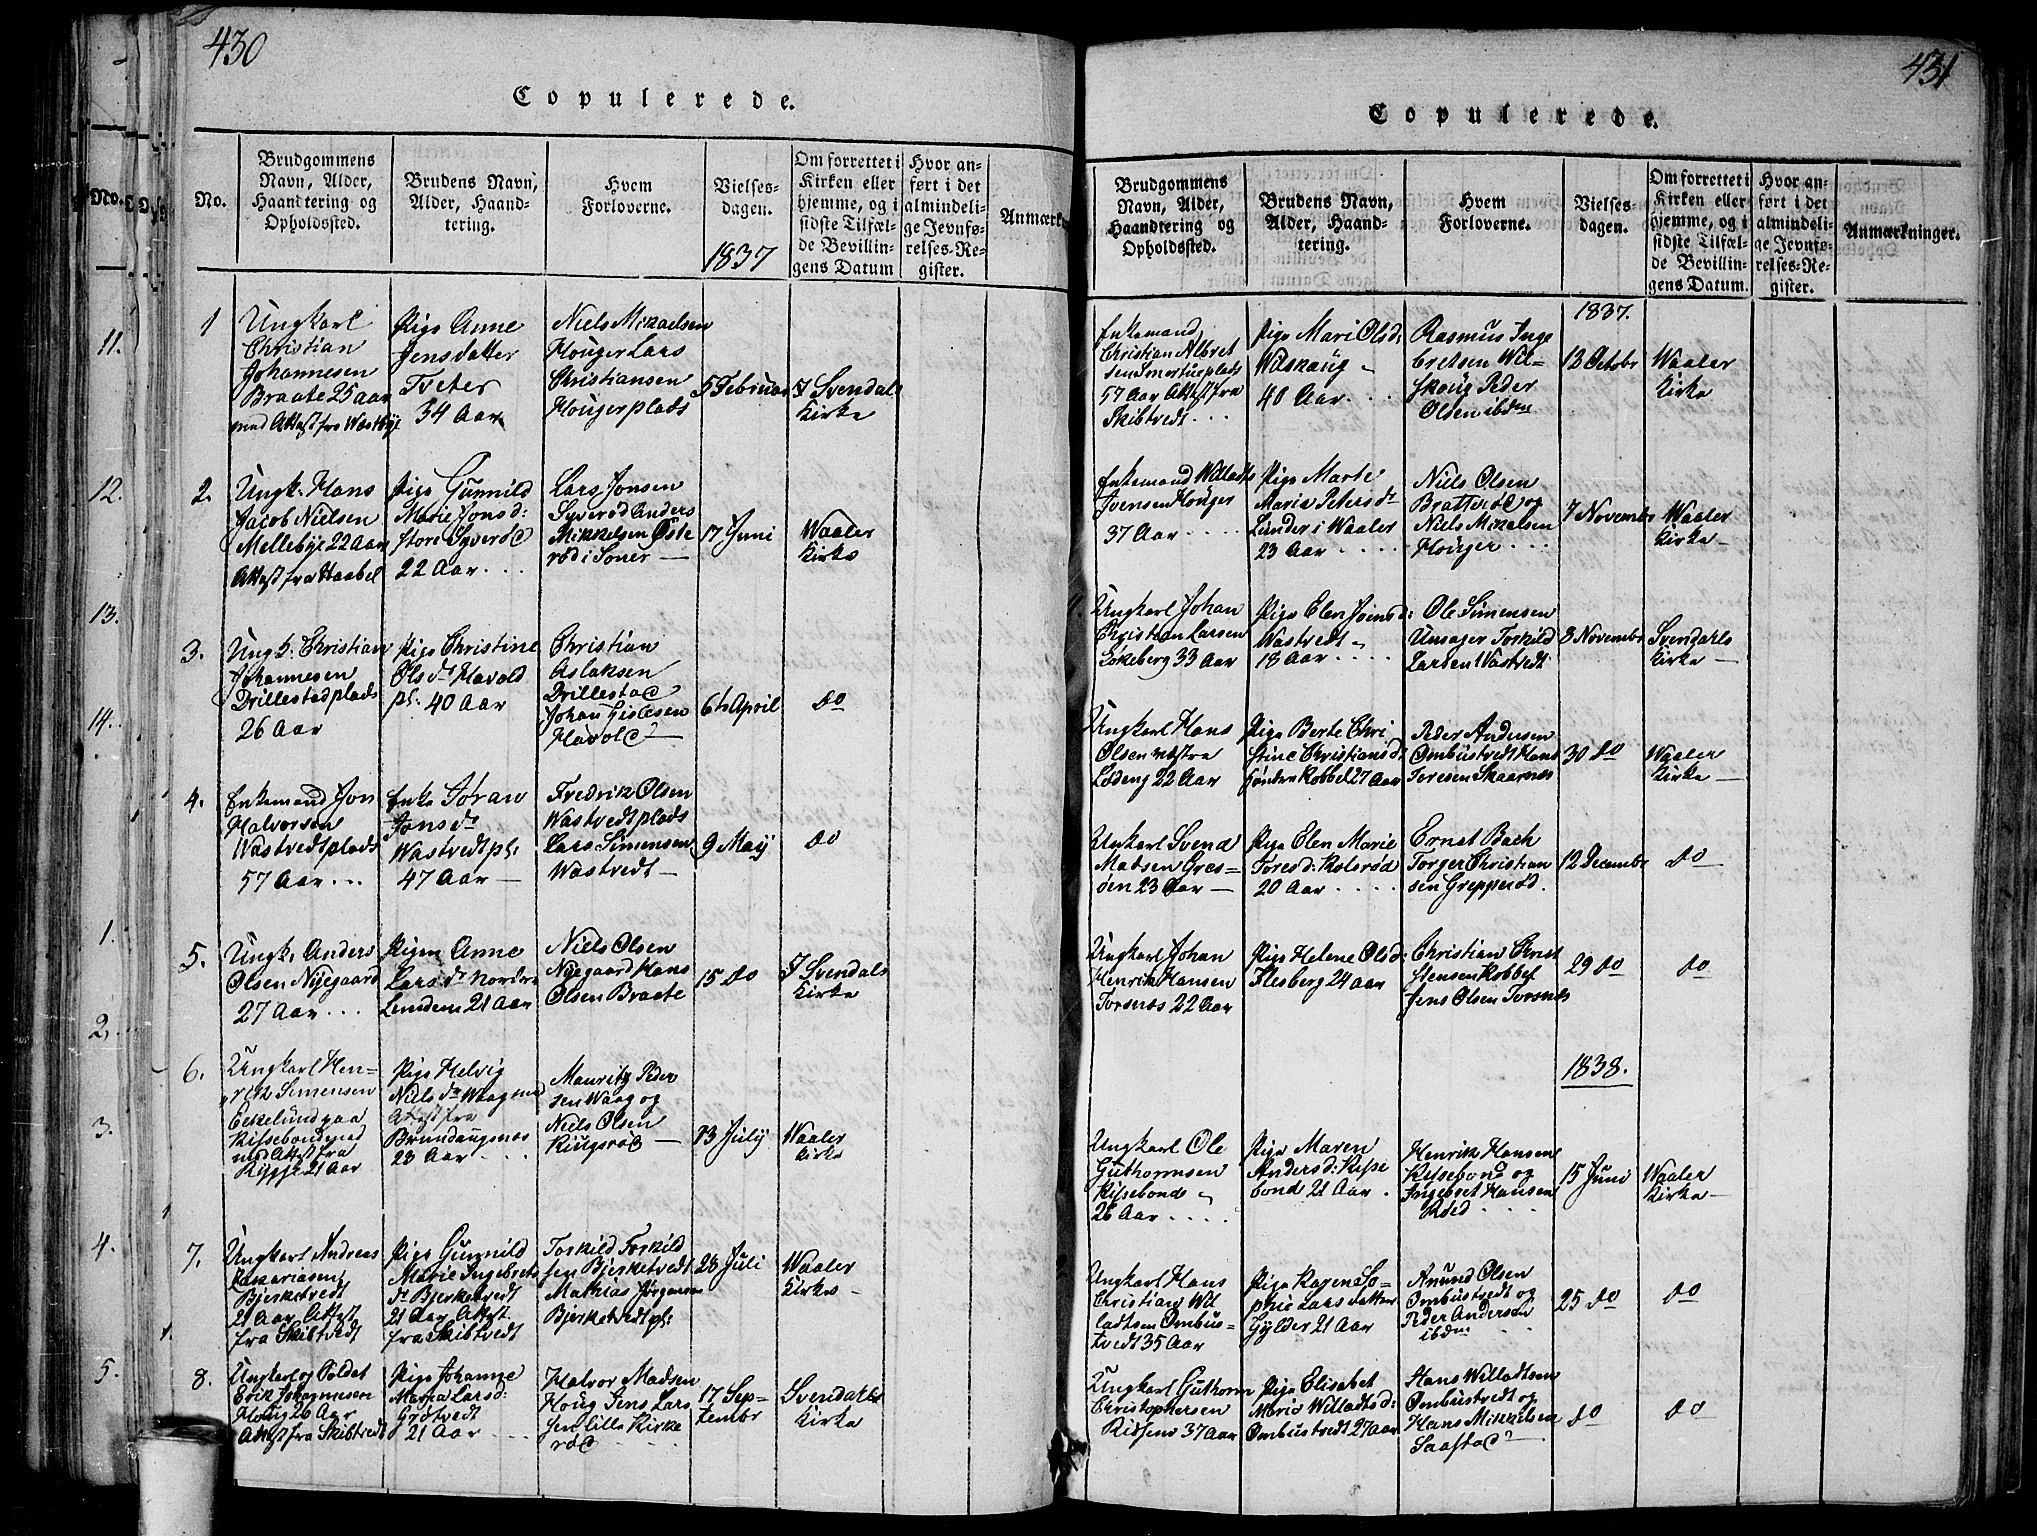 430
Copulerede.
No.
Brudgommens
Navn, Alder,
Haandtering og
Opholdssted.
Brudens Navn,
Alder, Haand-
tering.
Hvem
Forloverne.
Vielses-
dagen.
1837
Om forrettet i
Kirken eller
hjemme, og i
sidste Tilfæl-
de Bevillin-
gens Datum
Hvor an-
ført i det
almindeli-
ge Jevnfø-
relses-Re-
gister.
Anmærk
1
Ungkarl
Christian
Johannesen
Braate 25 aar
med Attest fra Wæstbye
Pige Anne
Jensdatter
Tveter
34 Aar
Niels Mikaelsen
Houger Lars
Christiansen
Hougerplads
5 Februar
I Svendals
Kirke
2.
Ungk. Hans
Jacob Nielsen
Mellebye 22 Aar
Attest fra Haabel
Pige Gunnild
Marie Jonsd:
Store Syverød
22 Aar
Lars Jonsen
Syverød Anders
Mikkelsen Øste
rød i Soner
17 Juni
Waaler
Kirke
3.
Ungk. Christian
Johannesen
Drillestadplads
26 Aar
Pige Christine
Olsdr Havold
pl. 40 Aar
Christian
Aslaksen
Drillestad
Johan Gislesen
Havold
6te April
do
4.
Enkemand Jon
Halvorsen
Wastvedtplads
57 Aar
Enke Søran
Jonsdr
Wastvedtpl:
47 Aar
Fredrik Olsen
Wastvedtplads
Lars Simensen
Wastvedt
9 May
do
5.
Ungk. Anders
Olsen Nyegaard
27 Aar
Pigen Anne
Larsdr Nordre
Lundem 21 Aar
Niels Olsen
Nyegaard Hans
Olsen Braate
15 do
I Svendals
Kirke
6.
Ungkarl Hen-
rik Simensen
Eekelund paa
Kissebond
med Attest fra
Rygge 21 Aar
Pige Helvig
Nielsdr Waag med
Attest fra
23 Aar
Mauritz Peder
sen Waag og
Niels Olsen
Ringsrød
13 July
Waaler
Kirke
7.
Ungkarl Andreas
Zakariasen
Bjerketvedt
21 Aar Attest
fra Skibtvedt
Pige Gunnild
Marie Ingebrets
dr Bjerketvedt
21 Aar Attest
fra Skibtvedt
Torkild Torkild
sen Bjerketvedt
Mathias Jørgensen
Bjerketvedtpl:
28 Juli
Waaler
Kirke
8.
Ungkarl og Soldat
Erik Johannesen
Houg 26 Aar
Attest fra Skibtvedt
Pige Johanne
Maria Larsd:
Grøtvedt
21 Aar
Halvor Madsen
Houg Jens Lars
sen Lille Kirke
rød
17 Sep-
tembr
Svendals
Kirke
431
Copulerede.
Brudgommens
Navn, Alder,
Haandtering og
Opholdssted.
Brudens Navn,
Alder, Haand-
tering.
Hvem
Forloverne.
Vielses-
dagen.
Om forrettet i
Kirken eller
hjemme, og i
sidste Tilfæl-
de Bevillin-
gens Datum.
Hvor an-
ført i det
almindeli-
ge Jevnfø-
relses-Re-
gister.
Anmærkninger.
1837.
Enkemand
Christian Albret
sen Smertueplads
57 Aar Attest fra
Skibtvedt
Pige Mari Olsd:
Wilskaug
40 Aar
Rasmus Inge
bretsen Wil-
skoug Peder
Olsen ibdm
12 Octobr
Waaler
Kirke
Enkemand Willads
Ivensen Houger
37 Aar
Pige Marte
Maria Petersdr
Lunder i Waaler
23 Aar
Niels Olsen
Bratterød og
Niels Mikalsen
Houger
7 Novembr
Waaler
Kirke
Ungkarl Johan
Christian Larsen
Løkeberg 33 Aar
Pige Elen Joensd:
Wastvedt
18 Aar
Ole Simensen
Unsager Torkild
Larsen Wastvedt
8 Novembr
Svendahls
Kirke
Ungkarl Hans
Olsen væstre
Lødeng 22 Aar
Pige Berte Chri
stine Christiansd:
Søndre Kobbel 27 Aar
Peder Andersen
Ombustvedt Hans
Toresen Skaarnes
30 do
Waaler
Kirke
Ungkarl Svend
Madsen Gres-
øen 23 Aar
Pige Elen Marie
Toresd: Kolsrød
20 Aar
Ernst Bach
Torger Christian
sen Grepperød.
12 Decembr
do
Ungkarl Johan
Henrik Hansen
Torsnæs 22 Aar
Pige Helene Olsd:
Flesberg 24 aar
Christian Chris
stensen Kobbel
Jens Olsen Torsnæs
29 do
do
1838.
Ungkarl Ole
Guthormsen
Kissebonde
26 Aar
Pige Maren
Andersd: Kisse
bond 21 Aar
Henrik Hansen
Kissebond og
Ingebret Hansen
Røed
15 Juni
Waaler
Kirke
Ungkarl Hans
Christian Wil
ladsen Ombus-
tvedt 35 Aar
Pige Karen So-
phie Larsdatter
Gylder 21 Aar
Anund Olsen
Ombustvedt og
Peder Andersen
ibdm
25 do
do
Ungkarl Guthorm
Christophersen
37 Aar
Pige Elisabet
Maria Willadsd:
Ombustvedt 27 Aar
Hans Willadsen
Ombustvedt og
Hans Mikkelsen
Saastad
do
do
No.
11.
12.
13.
14.
1.
2.
3.
4.
5.